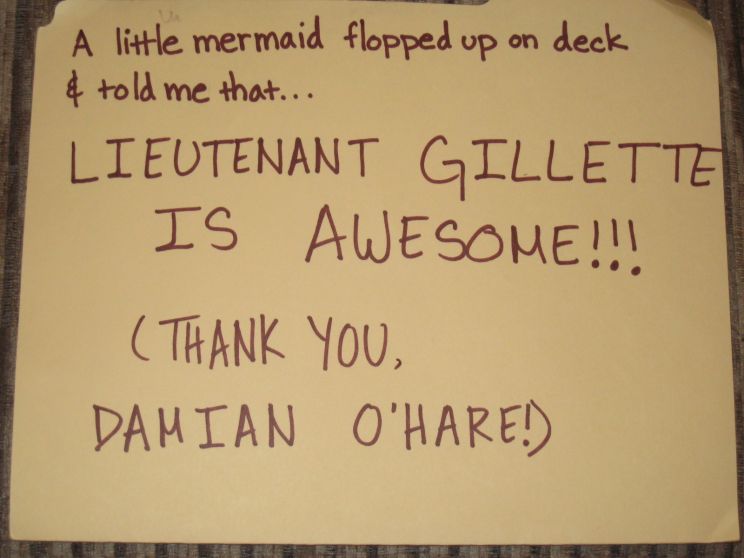 A little mermaid flopped up on deck
& told me that...
LIEUTENANT GILLETTE
IS AWESOME!!!
(THANK YOU,
DAMIAN O'HARE!)